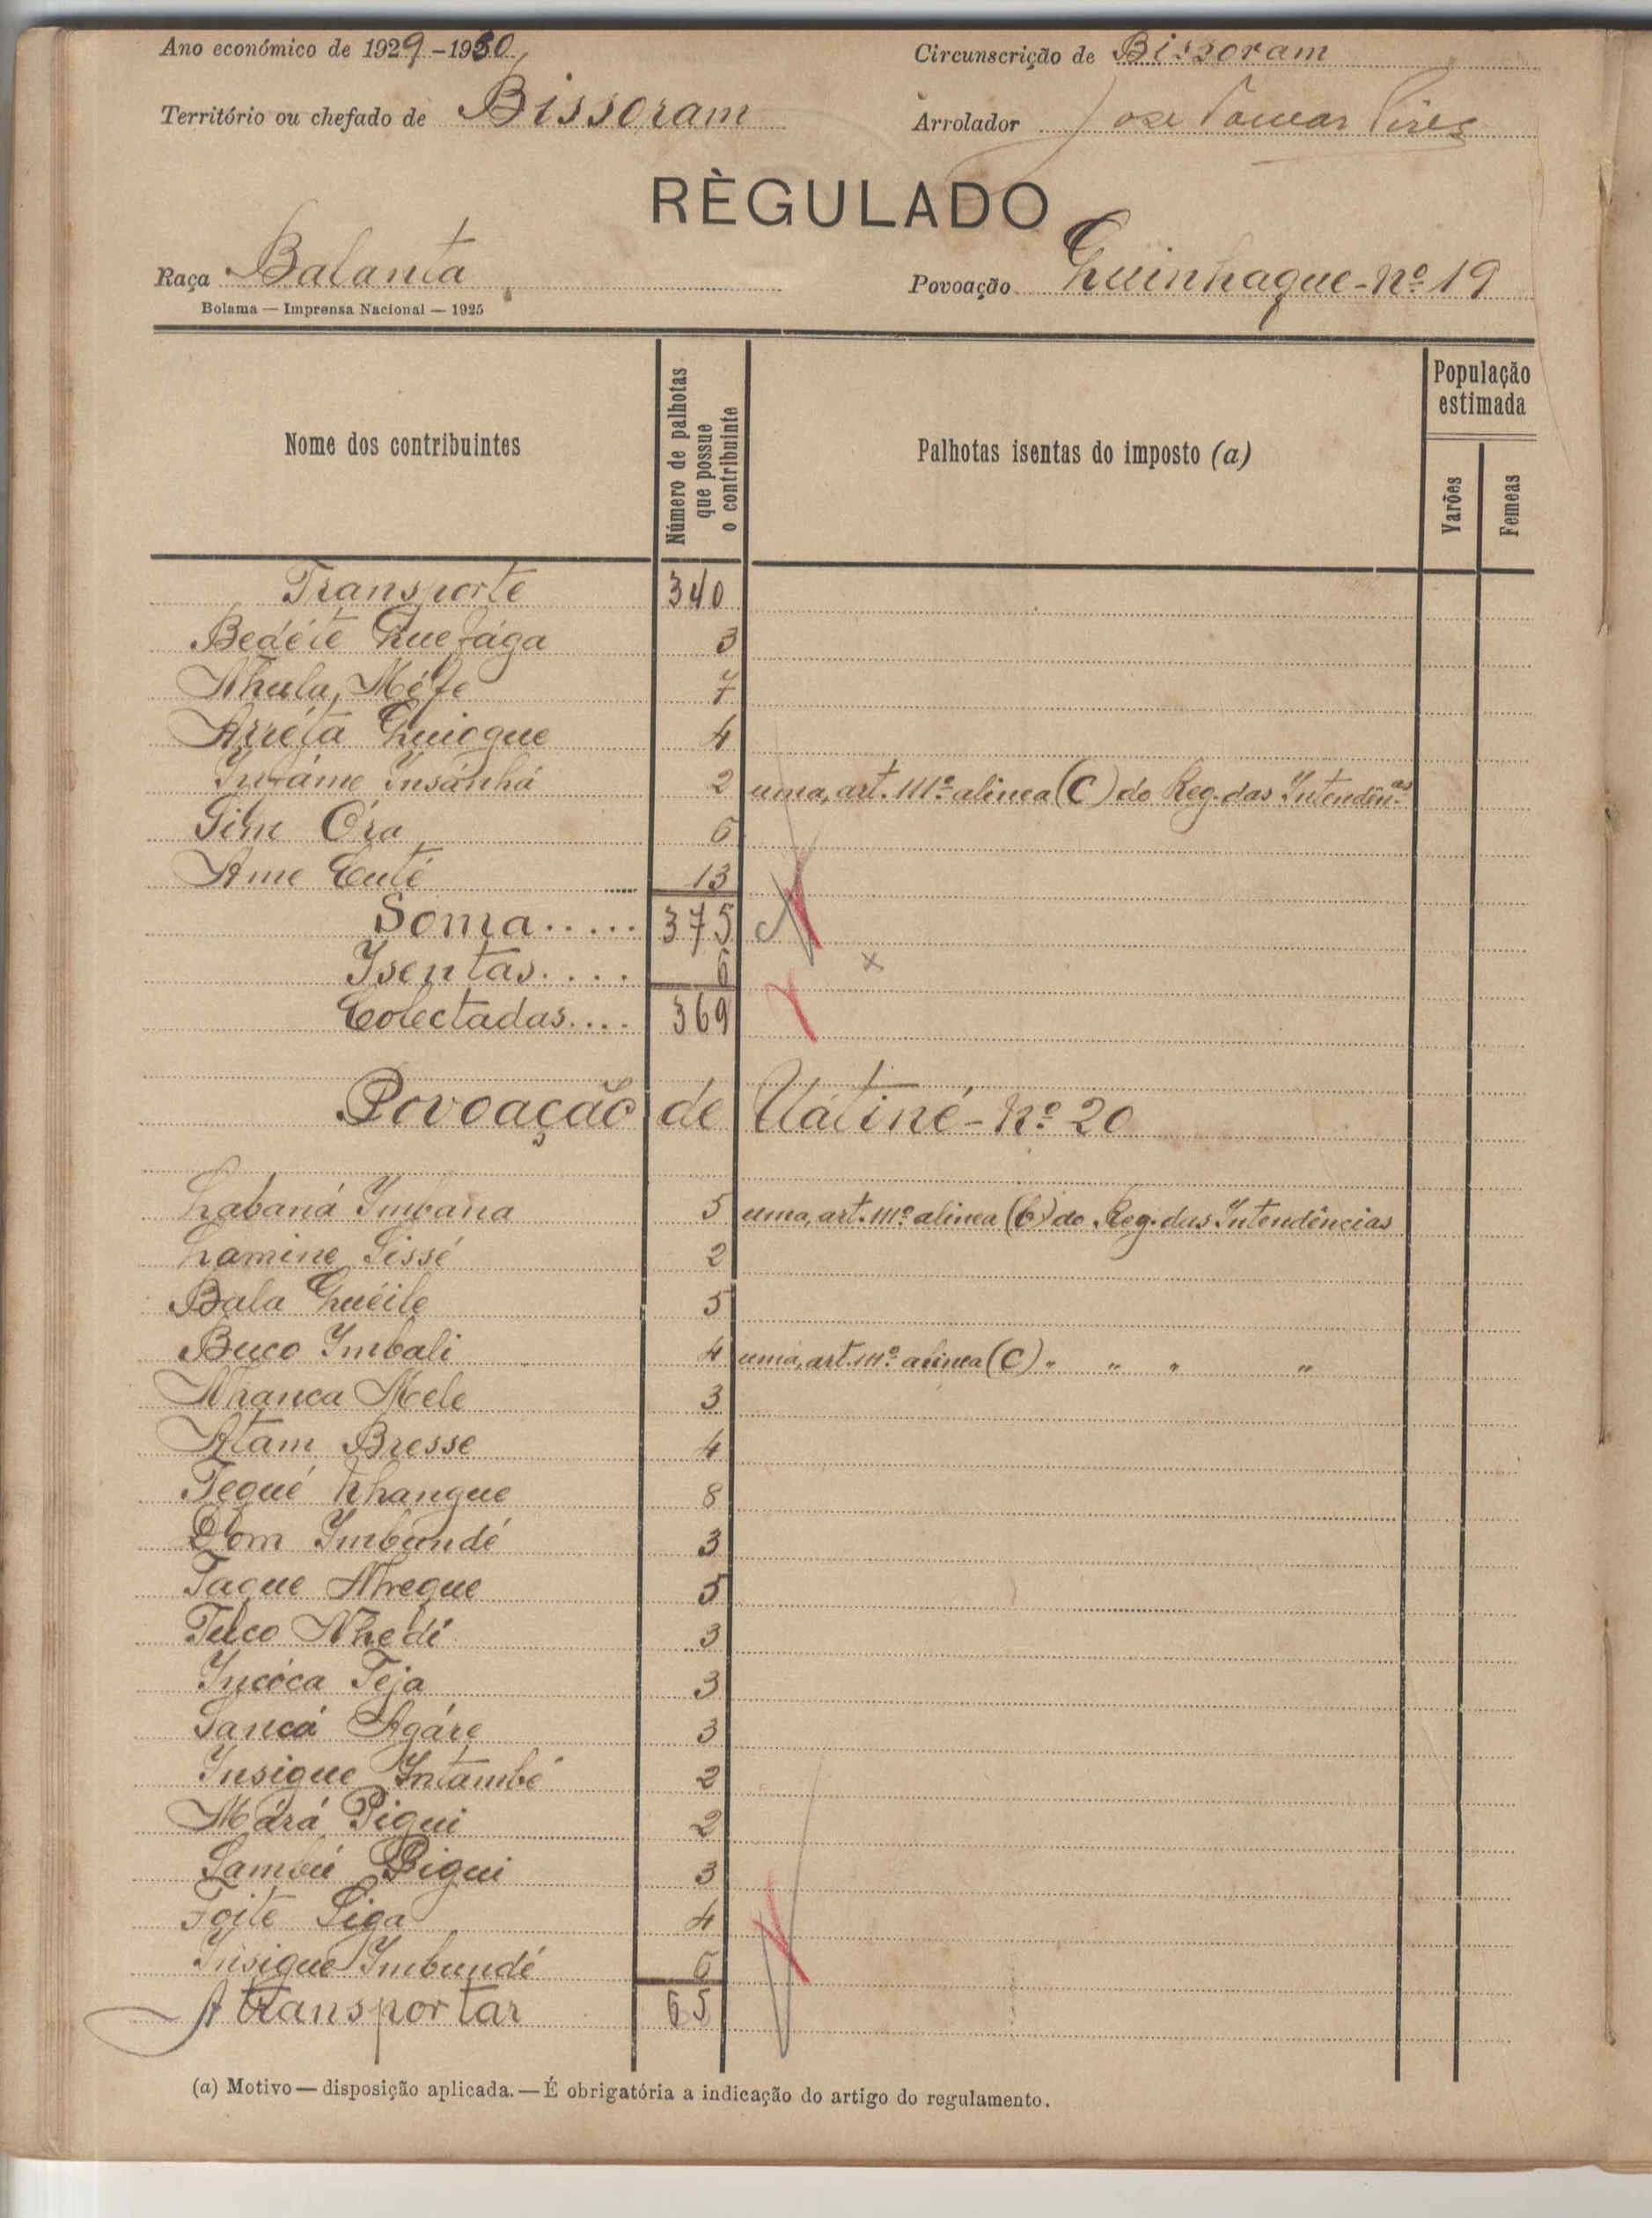 Ano económico de 1929-1930
Circunscrição de Bissoram
Território ou chefado de Bissoram
Arrolador José Pires
RÈGULADO
Raça Balanta
Povoação Guinhaque-Nº 19
Bolama — Imprensa Nacional — 1925
Nome dos contribuintes
Número de palhotas que possue o contribuinte
Palhotas isentas do imposto (a)
População estimada
Varões
Femeas
Transporte 340
Bedéte 3
Nhula, Méfe 7
Arréta Guicque 4
Insánhá 2 uma, art. 111º alinea (C) do Reg. das Intendên.as
Sine Óra 6
Ame Cuté 13
Soma..... 375
Isentas.... 6
Colectadas.... 369
Povoação de Uátiné - Nº 20
Labaná Imbana 5 uma, art. 111º alinea (b) do Reg. das Intendências
Lamine Sissé 2
Bala Guéile 5
Buco Imbali 4 uma, art. 111º alinea (C) " " " "
Nhanca Mele 3
Atam Bresse 4
Tequé Nhangue 8
Dom Imbundé 3
Taque Nhreque 5
Tulco Nhedi 3
Incóca Teja 3
Sancá Agáre 3
Insigue Intambé 2
Mará Pigui 2
Sambú Bigui 3
Foite Siga 4
Insigue Imbundé 6
A transportar 65
(a) Motivo — disposição aplicada. — É obrigatória a indicação do artigo do regulamento.